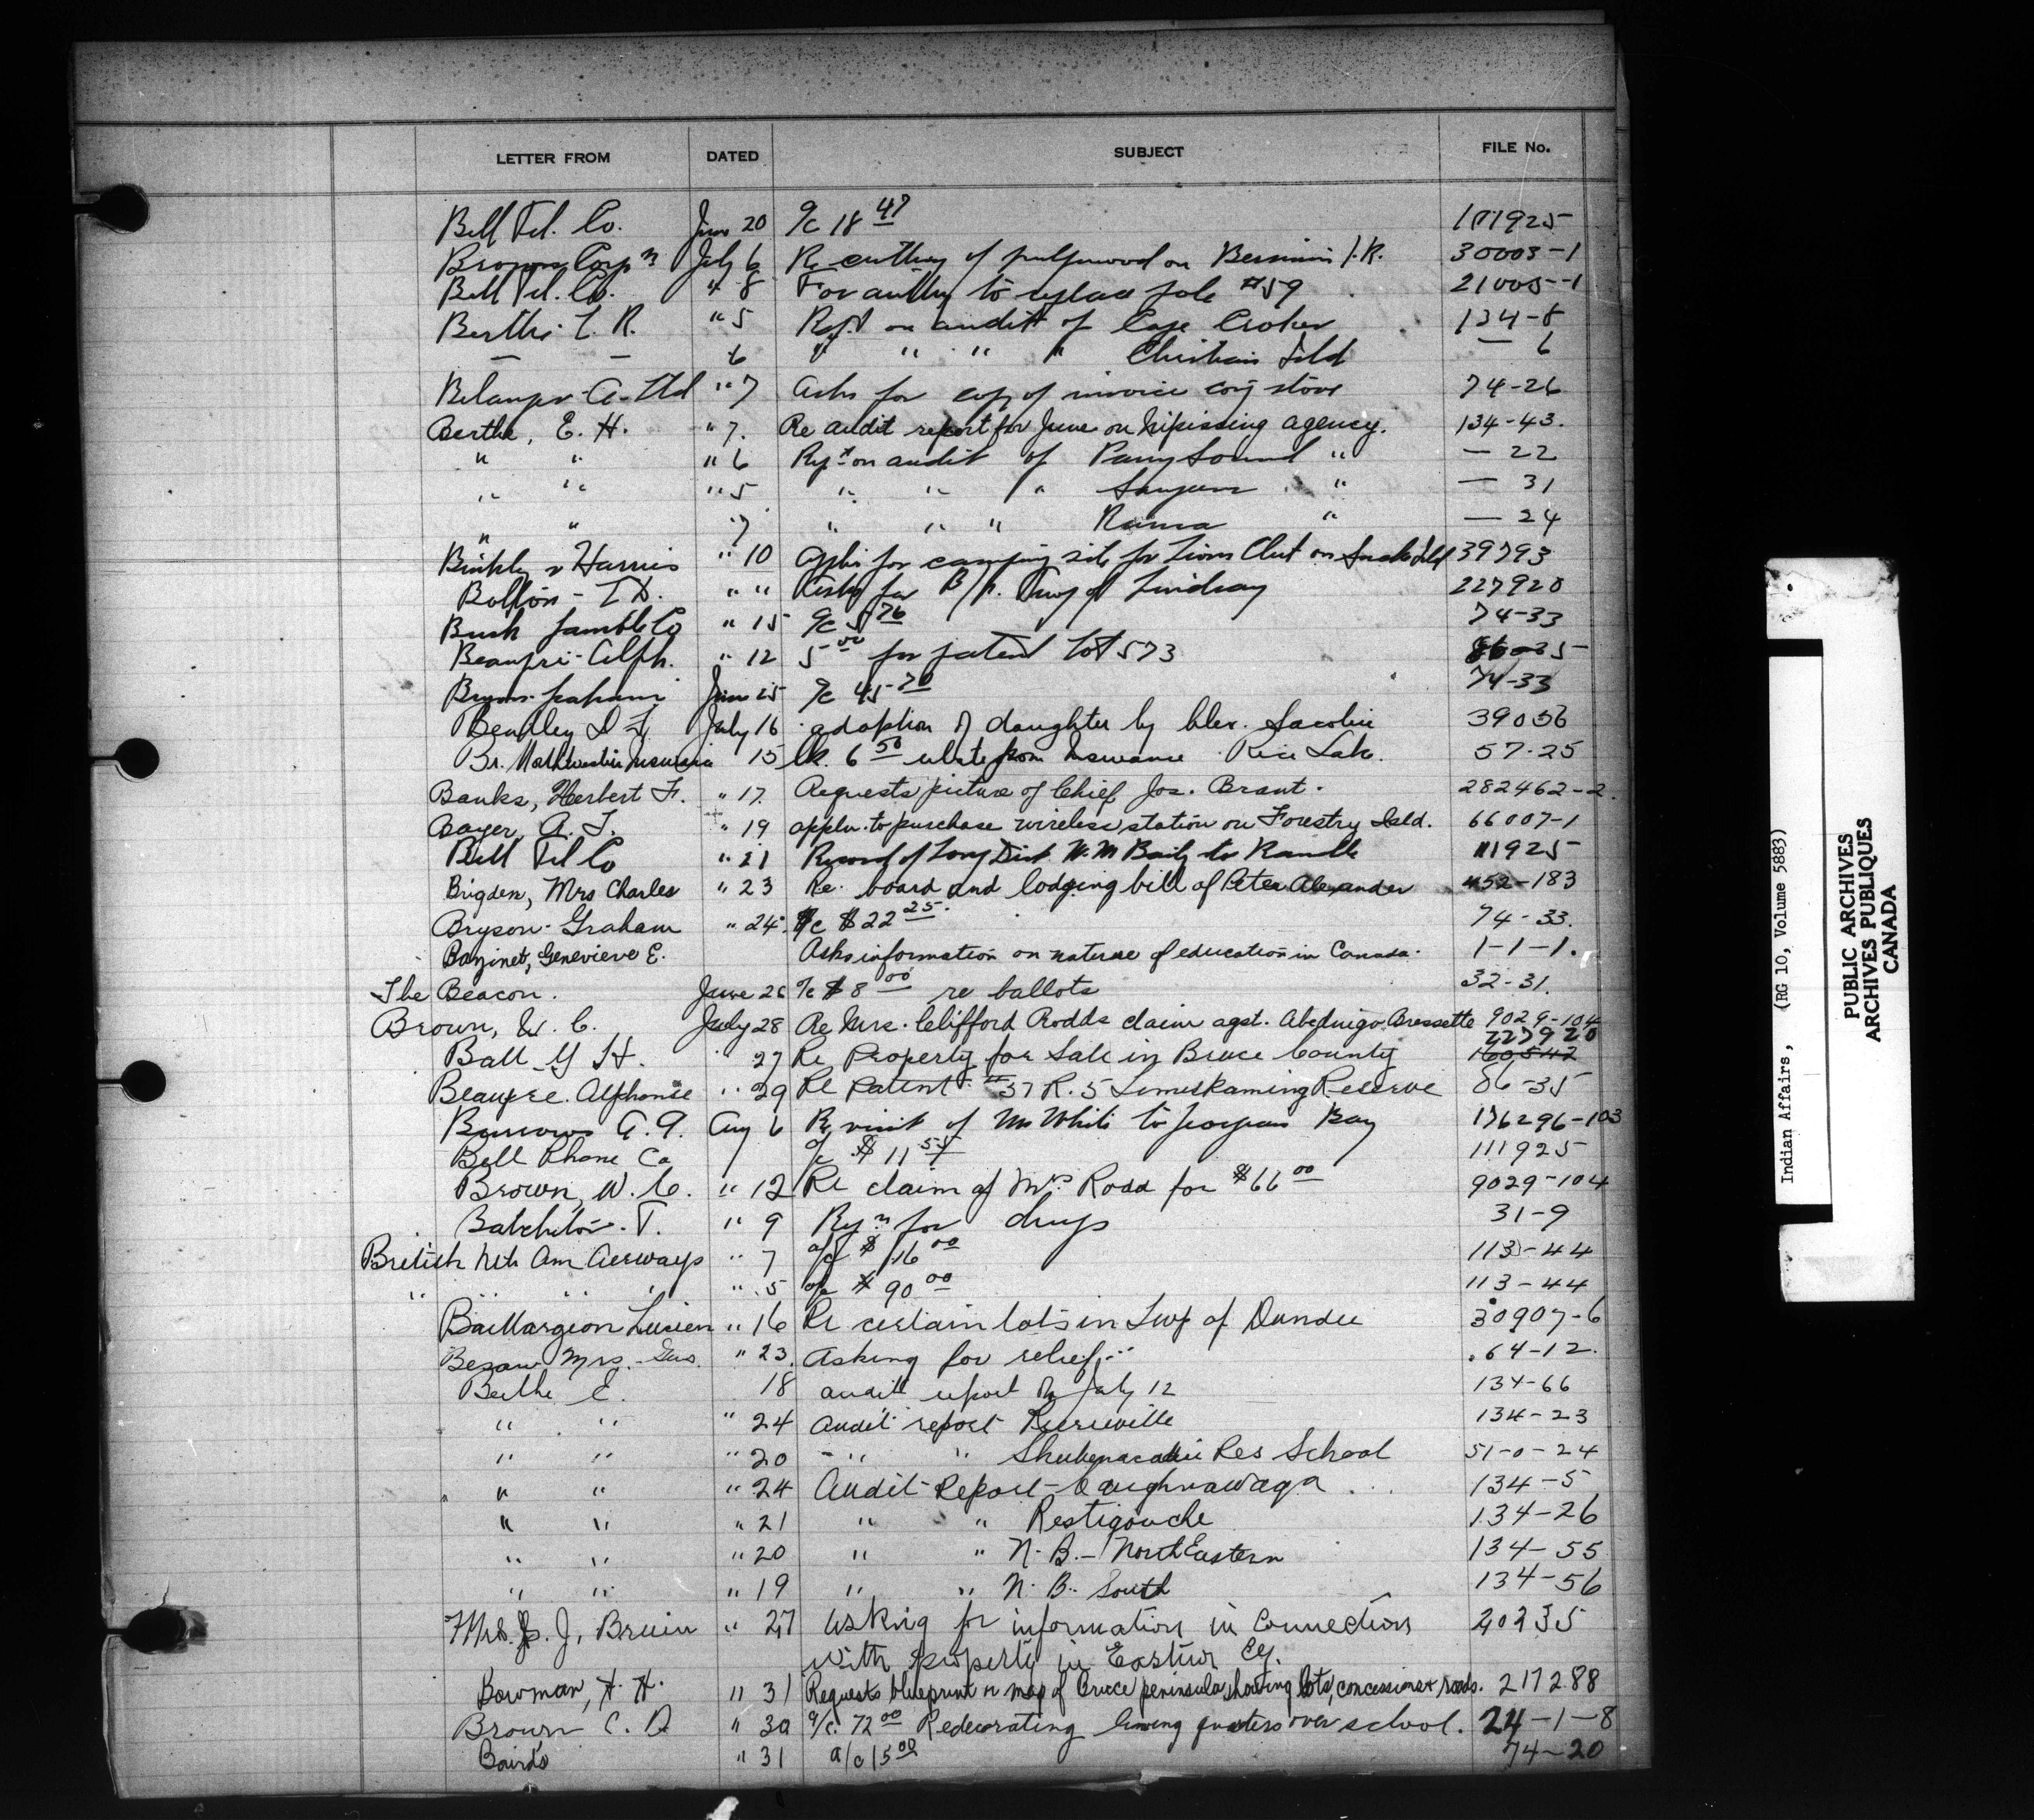 LETTER FROM DATED SUBJECT FILE No.
Bell Tel. Co. June 20 a/c 18 47 111925
Corp'n July 6 Re cutting of pulpwood on I.R. 30003-1
Bell Tel. Co. " 8 For authy to replace pole #59 21005-1
Berthe " 5 Rept on audit of Cape Croker 134-8
— — 6 " " " " Christian Isld — 6
Belanger A. Ltd " 7 Asks for copy of invoice stove 74-26
Berthe, E. H. " 7. Re audit report for June on Nipissing agency. 134-43.
" " " 6 Rept on audit of Parry Sound " — 22
" " " 5 " " " Saugeen " — 31
" " 7 " " " Rama " — 24
Binkley & Harris " 10 for camping site for Lions Club on Snake Isld 39793
Bolton - " " of Lindsay 227920
Bush Co " 15 a/c 5 76 74-33
Beaupre - Alph. " 12 5 00 for patent lot 573 86-35
Bryson Graham June 25 a/c 45 70 74-33
Bentley July 16 adoption of daughter by 39056
Br. Northwestern Insurance 15 6 50 rebate from Insurance Rice Lake. 57-25
Banks, Herbert F. " 17. Requests picture of Chief Jos. Brant. 282462-2.
" 19 appln. to purchase wireless station on Forestry Isld. 66007-1
Bell Tel Co " 21 Record of Long Dist. W. M to 111925
Brigden, Mrs Charles " 23 Re. board and lodging bill of Peter Alexander 452-183
Bryson - Graham " 24. a/c $22 25. 74-33.
Bazinet, Genevieve E. Asks information on nature of education in Canada. 1-1-1.
The Beacon. June 26 a/c $8 00 re ballots 32-31.
Brown, W. C. July 28 Re Mrs. Clifford Rodds claim agst. Abednigo Bressette 9029-104
227920
Ball 27 Re Property for Sale in Bruce County 160542
Beaupre. Alphonse " 29 Re Patent #37 R. 5 Temiskaming Reserve 86-35
Burrows A. Aug 6 Re visit of Mr White to Georgian Bay 176296-103
Bell Phone Co a/c $11 55 111925
Brown, W. C. " 12 Re claim of Mrs Rodd for $66 00 9029-104
Batchelor. T. " 9 for drugs 31-9
British Nth Am Airways " 7 a/c $16 00 113-44
" " " " " 5 a/c $90 00 113-44
Baillargeon Lucien " 16 Re certain lots in Twp of Dundee 30907-6
Mrs. " 23. Asking for relief 64-12.
Berthe E. 18 audit report July 12 134-66
" " " 24 Audit report Pierreville 134-23
" " " 20 " " Shubenacadie Res School 51-0-24
" " " 24 Audit Report - Caughnawaga 134-5
" " " 21 " " Restigouche 134-26
" " " 20 " " N. B. - North Eastern 134-55
" " " 19 " " N. B. South 134-56
Mrs. J. J. Bruin " 27 asking for information in connection 20235
with property in
Bowman, H. H. " 31 Requests blueprint or map of Bruce peninsula, showing lots, concessions & roads. 217288
Brown C. D. " 30 a/c. 72 00 Redecorating living quarters over school. 24-1-8
Bairds " 31 a/c 15 00 74-20
Indian Affairs, (RG 10, Volume 5883)
PUBLIC ARCHIVES
ARCHIVES PUBLIQUES
CANADA